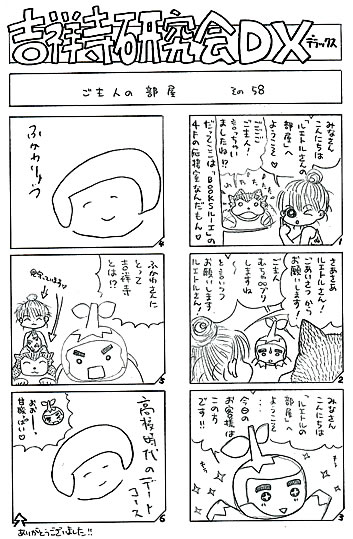 吉祥寺研究会DX
デラックス
ご主人の部屋 その58
みなさん
こんにちは
「ルエトルさんの
部屋」へ
ようこそ♡
ご主人!
言っちゃい
ましたね!?
だってここは「BOOKSルーエ」の
4Fの応援室なんだもん♡
1
さあさあ
ルエトルさん!
ごあいさつから
お願いします!
ごしゅ
しますね
と言いつつ
ルエトルさん!
お願いします
2
みなさん
こんにちは
「ルエトルの
部屋」へ
ようこそ
今日の
お客様は
この方
です!!
3
ふかわりょう
4
ふかわさんに
とって
吉祥寺
とは!?
似合っています♡
5
高校時代の
デート
コース
おお!
甘酸っぱい♡
6
ありがとうございました!!